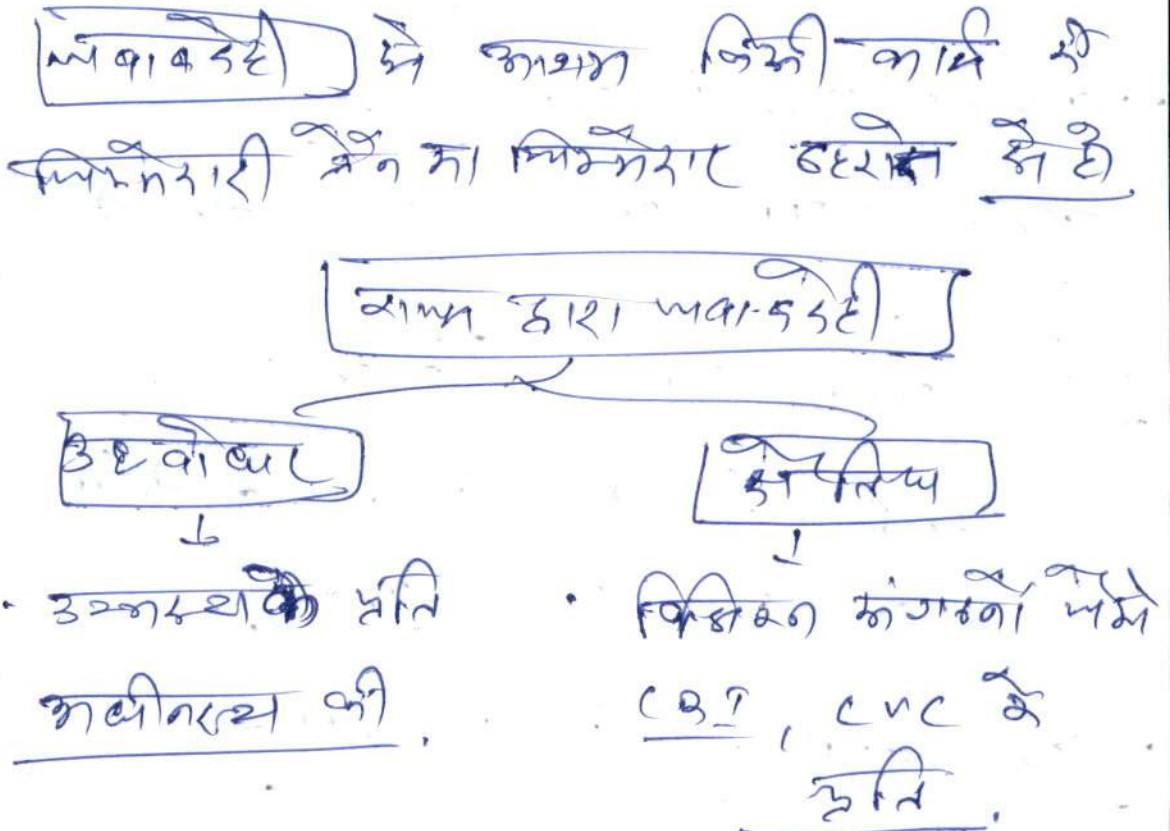 जवाबदेही से आशय किसी कार्य की
जिम्मेदारी लेने का जिम्मेदार ठहराने से है
राज्य द्वारा जवाबदेही
उर्ध्वाधर
क्षैतिज
• उच्चस्थ के प्रति
अधीनस्थ की.
• विभिन्न संगठनों जैसे
CBI, CVC के
प्रति.